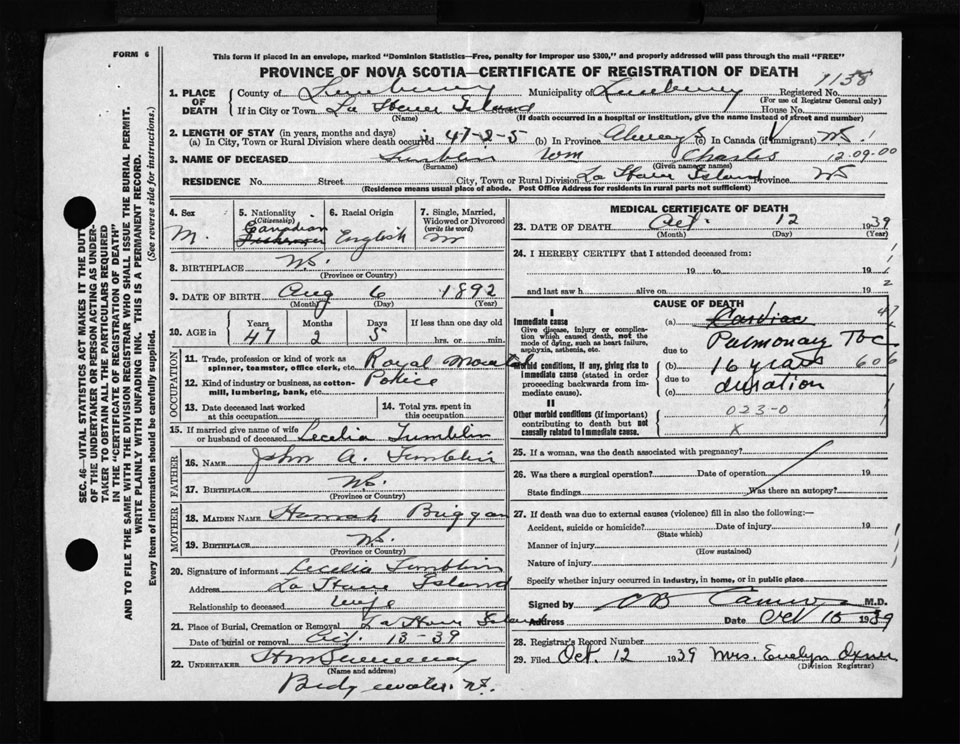 FORM 6
This form if placed in an envelope, marked "Dominion Statistics—Free, penalty for improper use $300," and properly addressed will pass through the mail "FREE"
PROVINCE OF NOVA SCOTIA—CERTIFICATE OF REGISTRATION OF DEATH
1138
1. PLACE OF DEATH County of Lunenburg Municipality of Lunenburg Registered No.
(For use of Registrar General only)
If in City or Town La Have Island House No.
(Name) (If death occurred in a hospital or institution, give name instead of street and number)
2. LENGTH OF STAY (in years, months and days)
(a) In City, Town or Rural Division where death occurred 47-2-5 (b) In Province Always (c) In Canada (if immigrant)
3. NAME OF DECEASED Tumblin Wm Charles 12.09.00
(Surname) (Given name or names)
RESIDENCE No. Street City, Town or Rural Division La Have Island Province NS
(Residence means usual place of abode. Post Office Address for residents in rural parts not sufficient)
4. Sex M.
5. Nationality (Citizenship) Canadian
6. Racial Origin English
7. Single, Married, Widowed or Divorced (write the word) M
8. BIRTHPLACE NS.
(Province or Country)
9. DATE OF BIRTH Aug 6 1892
(Month) (Day) (Year)
10. AGE in Years Months Days If less than one day old
47 2 5 hrs. or min.
OCCUPATION
11. Trade, profession or kind of work as spinner, teamster, office clerk, etc. Royal Mounted
12. Kind of industry or business, as cotton-mill, lumbering, bank, etc. Police
13. Date deceased last worked at this occupation
14. Total yrs. spent in this occupation
15. If married give name of wife or husband of deceased Cecelia Tumblin
FATHER
16. NAME John A. Tumblin
17. BIRTHPLACE NS.
(Province or Country)
MOTHER
18. MAIDEN NAME Hannah Briggan
19. BIRTHPLACE NS.
(Province or Country)
20. Signature of informant Cecelia Tumblin
Address La Have Island
Relationship to deceased wife
21. Place of Burial, Cremation or Removal La Have Island
Date of burial or removal Oct. 13-39
22. UNDERTAKER
(Name and address)
Bridgewater N.S.
MEDICAL CERTIFICATE OF DEATH
23. DATE OF DEATH Oct. 12 1939
(Month) (Day) (Year)
24. I HEREBY CERTIFY that I attended deceased from:
19 to 19
and last saw h alive on 19
CAUSE OF DEATH
I
Immediate cause
Give disease, injury or complication which caused death, not the mode of dying, such as heart failure, asphyxia, asthenia, etc.
Morbid conditions, if any, giving rise to immediate cause (stated in order proceeding backwards from immediate cause).
II
Other morbid conditions (if important) contributing to death but not causally related to immediate cause.
(a) Cardiac
due to Pulmonary Tbc
(b) 16 years 606
due to
(c) duration
023-0
x
25. If a woman, was the death associated with pregnancy?
26. Was there a surgical operation? Date of operation 19
State findings Was there an autopsy?
27. If death was due to external causes (violence) fill in also the following:—
Accident, suicide or homicide? Date of injury 19
(State which)
Manner of injury
(How sustained)
Nature of injury
Specify whether injury occurred in industry, in home, or in public place
Signed by M.D.
Address Date Oct 15 1939
28. Registrar's Record Number
29. Filed Oct. 12 1939 Mrs. Evelyn Oxner
(Division Registrar)
SEC. 46—VITAL STATISTICS ACT MAKES IT THE DUTY
OF THE UNDERTAKER OR PERSON ACTING AS UNDER-
TAKER TO OBTAIN ALL THE PARTICULARS REQUIRED
IN THE "CERTIFICATE OF REGISTRATION OF DEATH"
AND TO FILE THE SAME WITH THE DIVISION REGISTRAR WHO SHALL ISSUE THE BURIAL PERMIT.
WRITE PLAINLY WITH UNFADING INK. THIS IS A PERMANENT RECORD.
Every item of information should be carefully supplied. (See reverse side for instructions.)